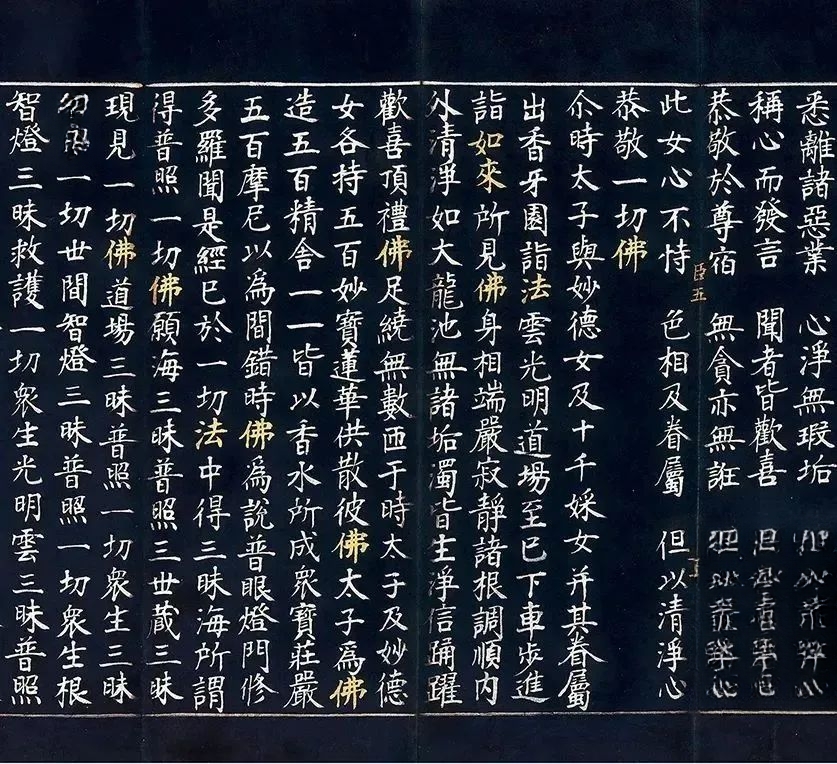 悉離諸惡業 心淨無瑕垢
稱心而發言 聞者皆歡喜
恭敬於尊宿 無貪亦無誑
臣五
此女心不恃 色相及眷屬 但以清淨心
恭敬一切佛
尒時太子與妙德女及十千婇女并其眷屬
出香牙園詣法雲光明道場至已下車步進
詣如來所見佛身相端嚴寂靜諸根調順内
外清淨如大龍池無諸垢濁皆生淨信踊躍
歡喜頂禮佛足繞無數匝于時太子及妙德
女各持五百妙寶蓮華供散彼佛太子為佛
造五百精舍一一皆以香水所成衆寶莊嚴
五百摩尼以為間錯時佛為説普眼燈門修
多羅聞是經已於一切法中得三昧海所謂
得普照一切佛願海三昧普照三世藏三昧
現見一切佛道場三昧普照一切衆生三昧
一切世間智燈三昧普照一切衆生根
智燈三昧救護一切衆生光明雲三昧普照